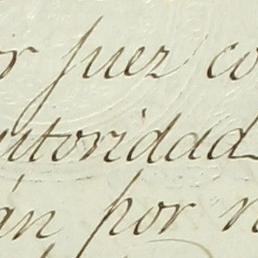 r Juez co
utoridad
án por n